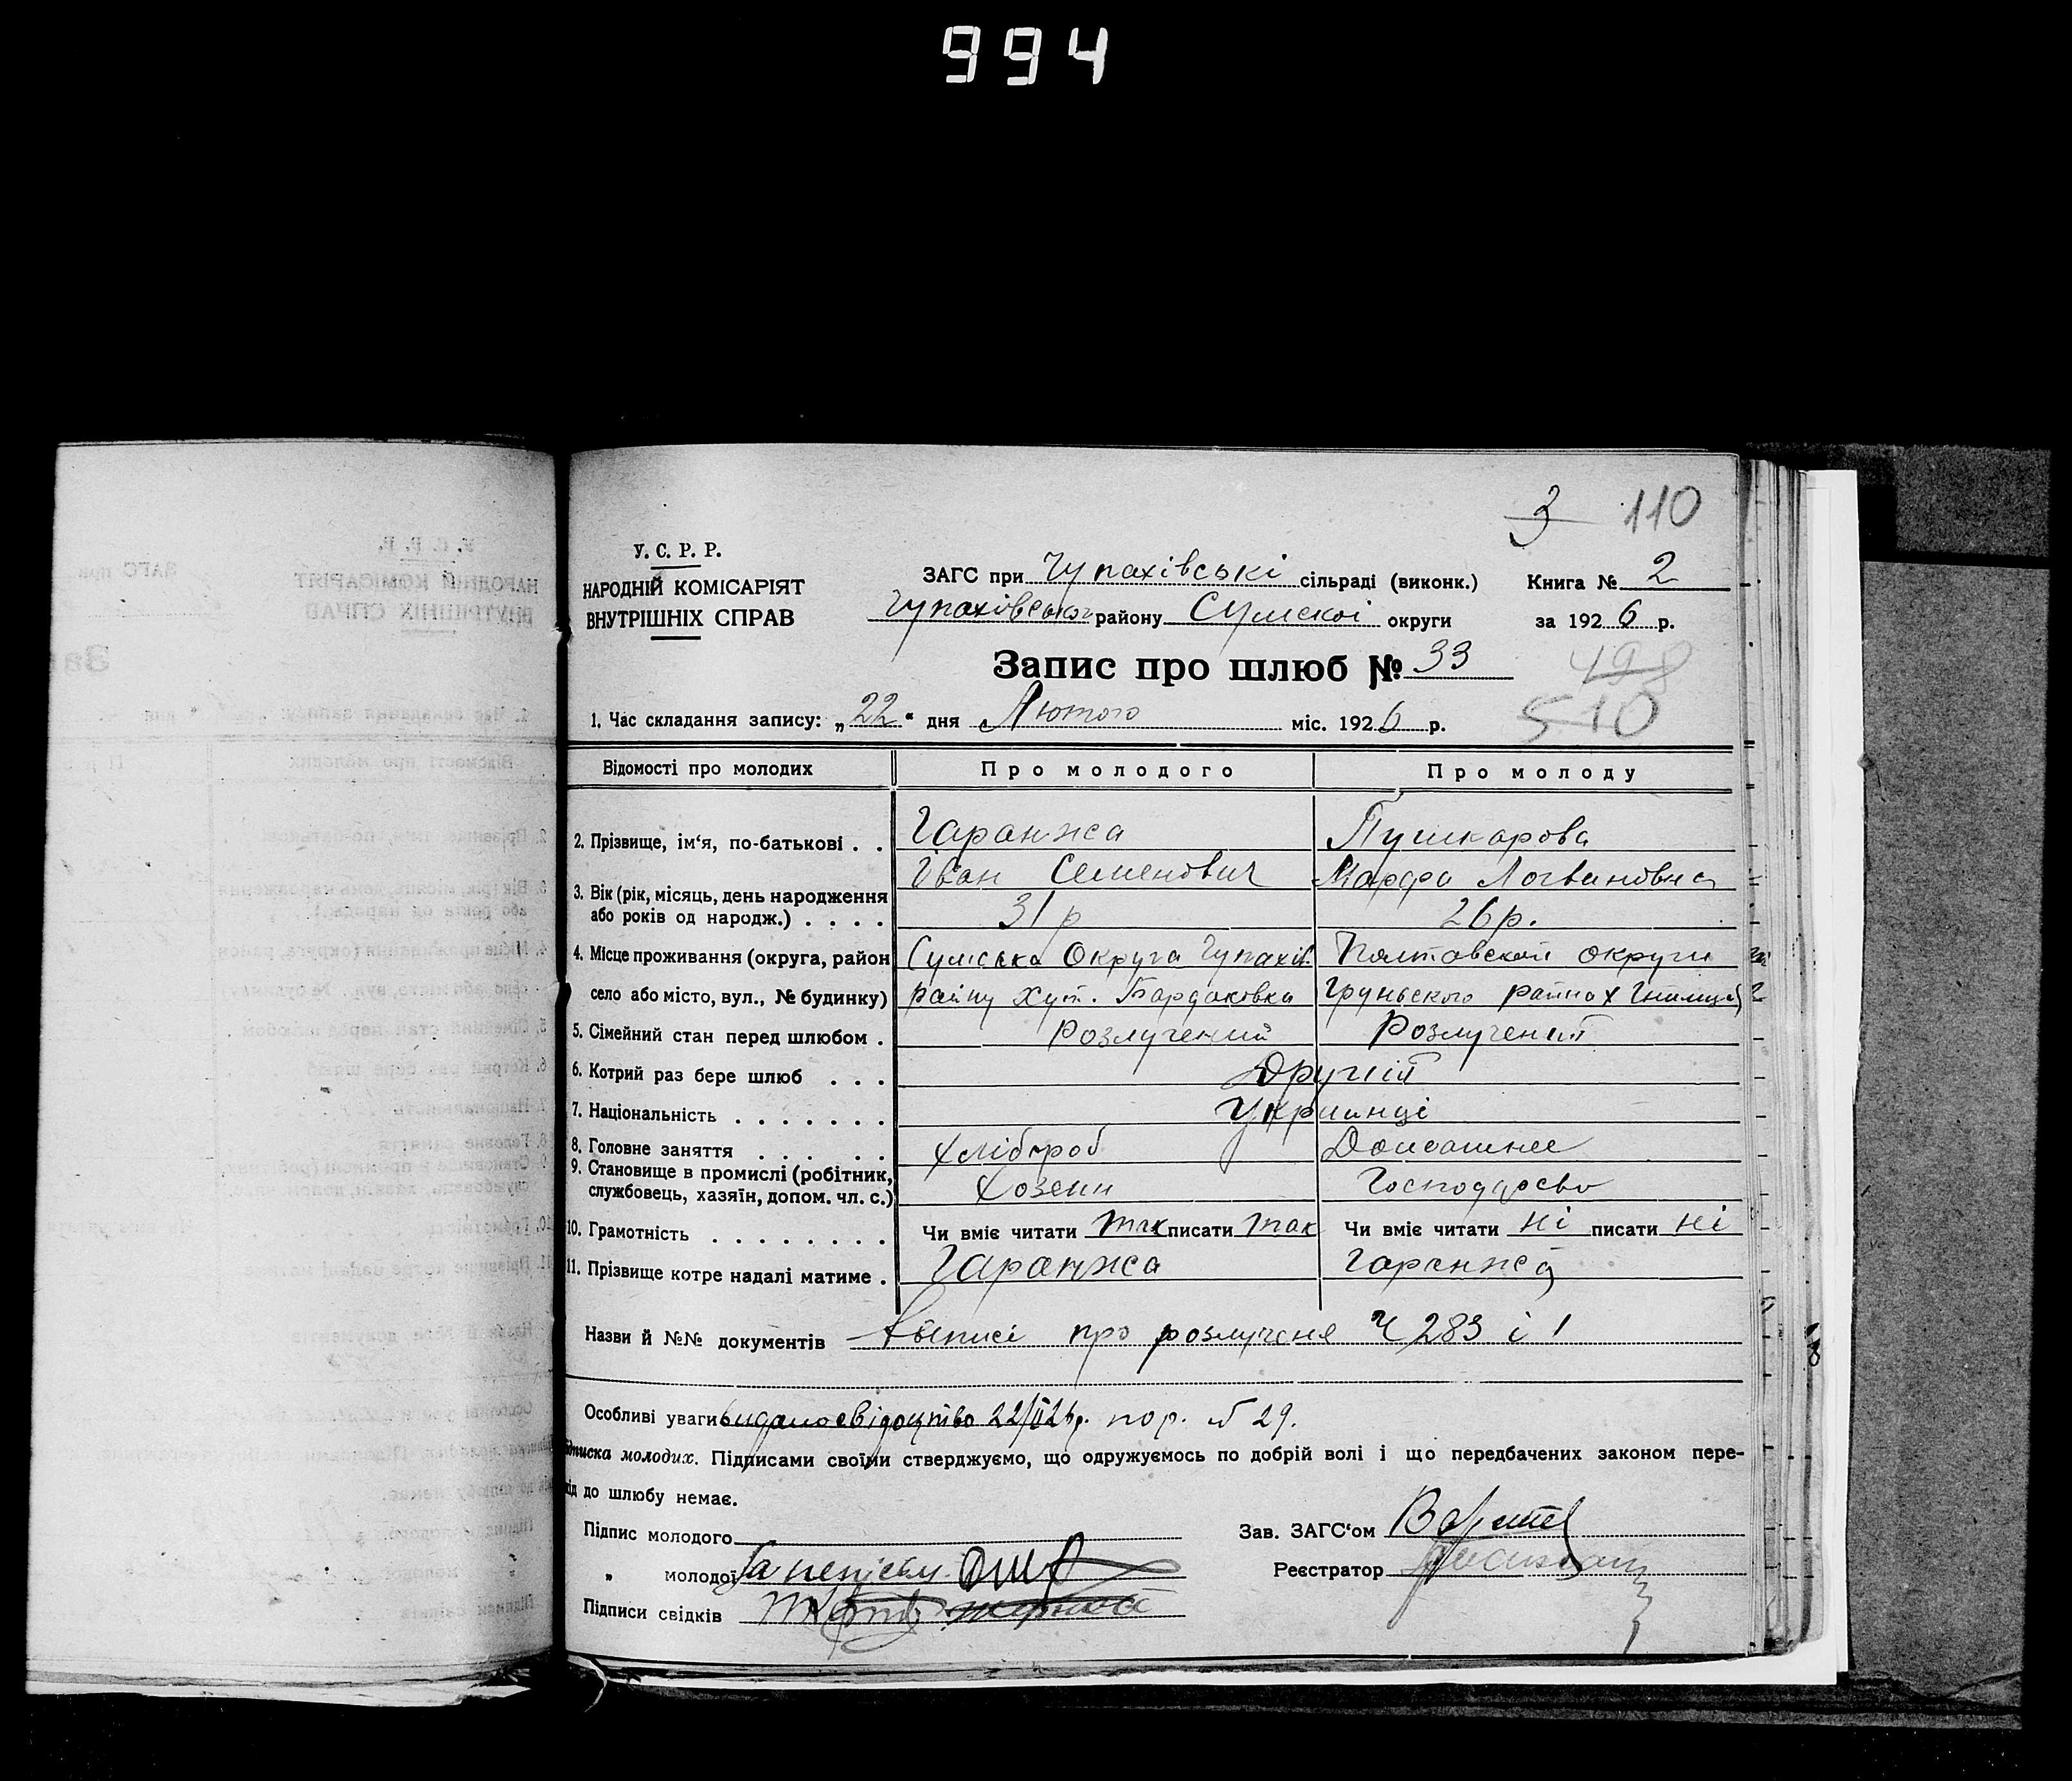 994
3 110
У. С. Р. Р.
НАРОДНІЙ КОМІСАРІЯТ
ВНУТРІШНІХ СПРАВ
ЗАГС при Чупахівські сільраді (виконк.) Книга № 2
Чупахівського району Сумскоі округи за 1926 р.
Запис про шлюб № 33
498
510
1. Час складання запису: „22“ дня Лютого міс. 1926 р.
Відомості про молодих Про молодого Про молоду
2. Прізвище, ім‘я, по-батькові . . Гаранжа Пушкарова
Іван Семенович Марфа Логвиновна
3. Вік (рік, місяць, день народження
або років од народж.) . . . . 31 р 26 р.
4. Місце проживання (округа, район Сумська Округа Чупахів. Полтавской округи
село або місто, вул., № будинку) райну Хут. Бардаковка Груньского района х
5. Сімейний стан перед шлюбом . Розлучений Розлучений
6. Котрий раз бере шлюб . . . Другий
7. Національність . . . . . . . Украинці
8. Головне заняття . . . . . . Хлібороб Домашнее
9. Становище в промислі (робітник,
службовець, хазяїн, допом. чл. с.) Хозеин Господарсво
10. Грамотність . . . . . . . . Чи вміє читати так писати так Чи вміє читати ні писати ні
11. Прізвище котре надалі матиме . Гаранжа Гаранжа
Назви й №№ документів Выписі про розлученя Ч 283 і 1
Особливі уваги видано свідоцтво 22/II 26р. пор. № 29.
підписка молодих. Підписами своїми стверджуємо, що одружуємось по добрій волі і що передбачених законом пере-
від до шлюбу немає.
Підпис молодого
„ молодої
Підписи свідків
Зав. ЗАГС‘ом
Реєстратор